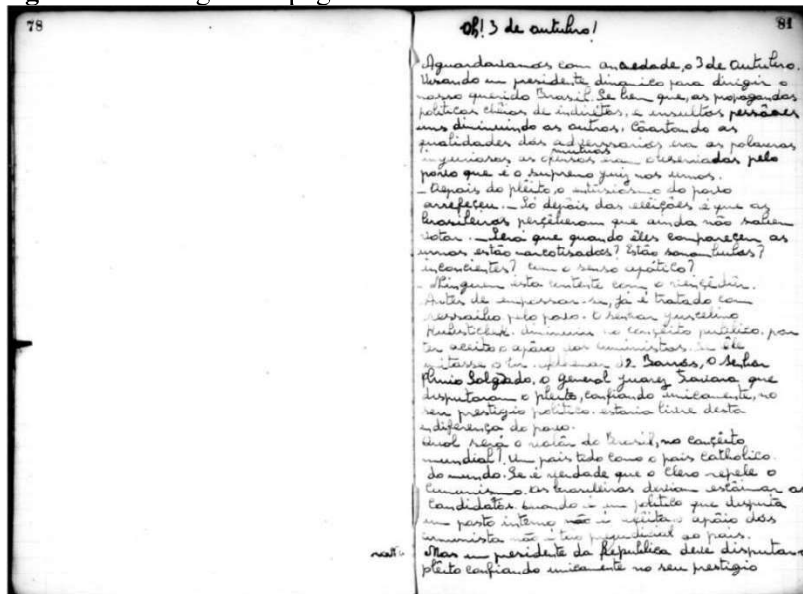 78
81
Oh! 3 de outubro!
Aguardavamos com anciedade, o 3 de Outubro.
Visando um presidente dinamico para dirigir o
nosso querido Brasil. Se bem que, as propagandas
politicas chêias de indirêtas, e insultos pessôaes
uns diminuindo os outros.                as
qualidades dos adverssarios era as polavras
mutuas
injuriosas as ofensas eram observadas pelo
povo que é o supremo juiz nas urnas.
_ Depois do plêito, o                do povo
arrefeçeu. _ Só depôis das elêições é que os
brasilêiros perçêberam que ainda não sabem
votar. _ Será que quando êles compareçem as
urnas estão narcotisados? Estão sonambulos?
inconcientes? com o senso apático?
_ Ninguem esta contente com o vençêdôr.
Antes de empossar-se, já é tratado com
               pelo povo. O senhor Jusçelino
Kubistchek. diminuiu no conçêito publico. por
ter açeito o apôio dos cuministas. Se êle
imitasse o Snr. Adhemar de Barros, o Senhor
Plinio Salgado, o general Juarez Tavora que
disputaram o pleito, confiando unicamente, no
seu prestigio politico. estaria livre desta
indiferença do povo.
Qual será o valôr do Brasil, no conçêito
mundial? Um pais tido como o pais catholico.
do mundo. Se é verdade que o Clero repele o
Cumunismo. Os brasilêiros deviam                os
Candidatos. Quando é um politico que disputa
um posto interno não é                apôio dos
cumunista não é tao prejudicial ao pais.
Mas um presidente da Republica deve disputar o
plêito confiando unicamente no seu prestigio